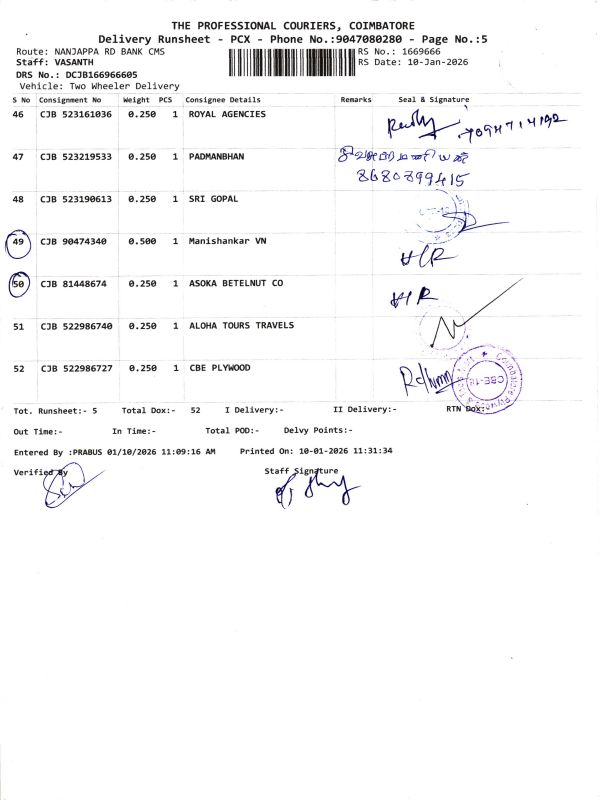 THE PROFESSIONAL COURIERS, COIMBATORE
Delivery Runsheet - PCX - Phone No.:9047080280 - Page No.:5
Route: NANJAPPA RD BANK CMS
RS No.: 1669666
Staff: VASANTH
RS Date: 10-Jan-2026
DRS No.: DCJB166966605
Vehicle: Two Wheeler Delivery
S No Consignment No Weight PCS Consignee Details Remarks Seal & Signature
46 CJB 523161036 0.250 1 ROYAL AGENCIES 7094714192
47 CJB 523219533 0.250 1 PADMANBHAN
8680899415
48 CJB 523190613 0.250 1 SRI GOPAL
49 CJB 90474340 0.500 1 Manishankar VN
50 CJB 81448674 0.250 1 ASOKA BETELNUT CO
51 CJB 522986740 0.250 1 ALOHA TOURS TRAVELS
52 CJB 522986727 0.250 1 CBE PLYWOOD
Tot. Runsheet:- 5 Total Dox:- 52 I Delivery:- II Delivery:- RTN Dox:-
Out Time:- In Time:- Total POD:- Delvy Points:-
Entered By :PRABUS 01/10/2026 11:09:16 AM Printed On: 10-01-2026 11:31:34
Verified By Staff Signature